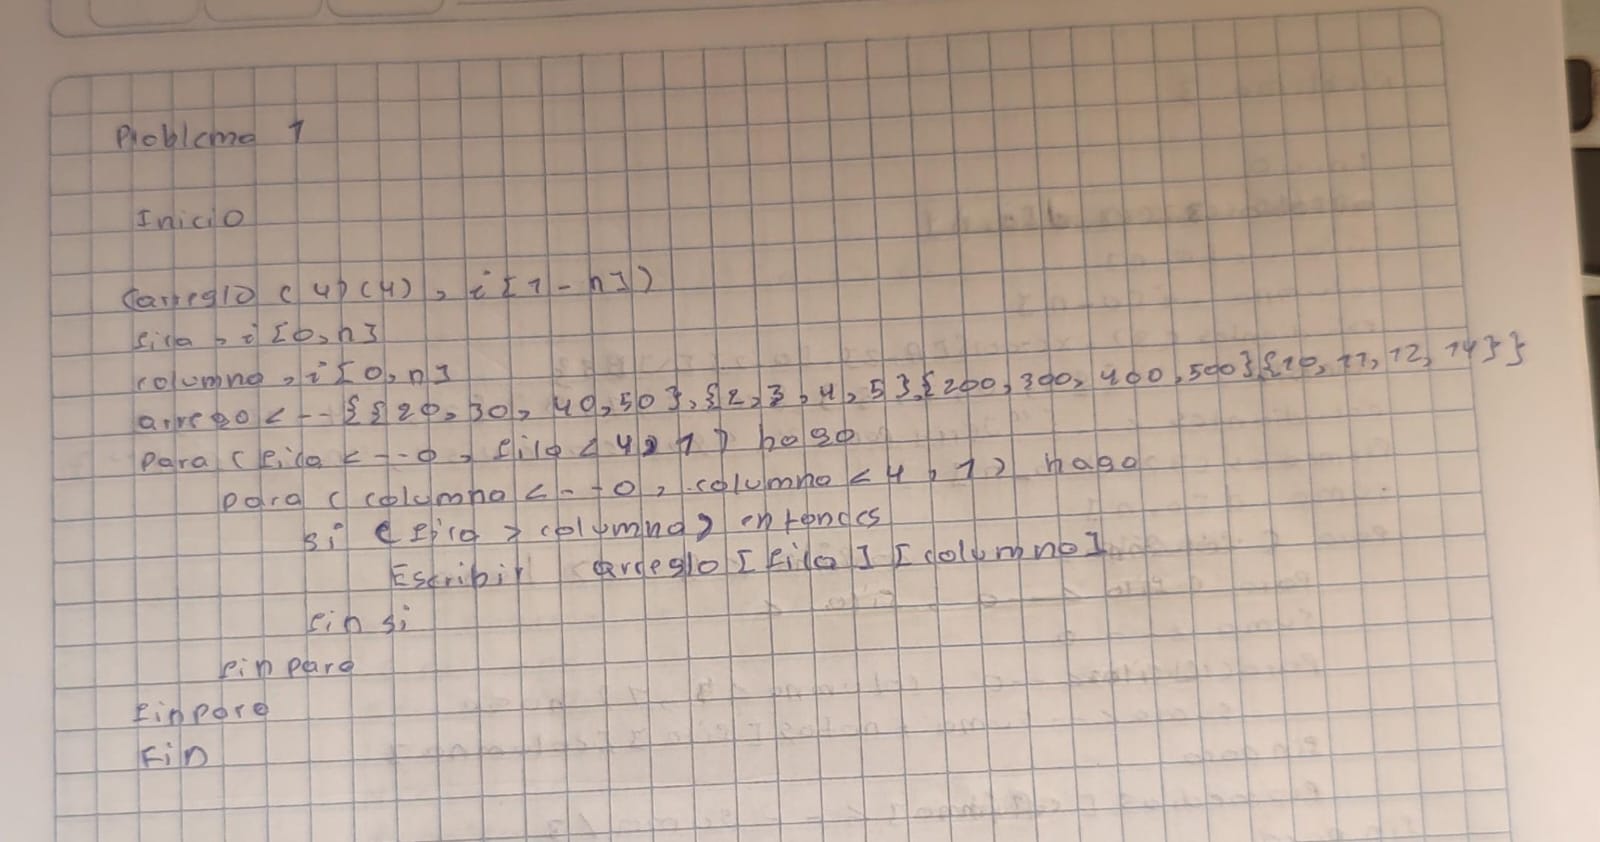 Problema 1
Inicio
(arreglo (4)(4), i[1-n])
fila, i[0,n]
columna, i[0,n]
arrego <--{{20,30,40,50},{2,3,4,5},{200,300,400,500}{10,11,12,14}}
para (fila <--0, fila<4,1) haga
para (columna <--0, columna<4,1) haga
si (fila > columna) entonces
Escribir arreglo[fila][columna]
fin si
fin para
finpara
Fin